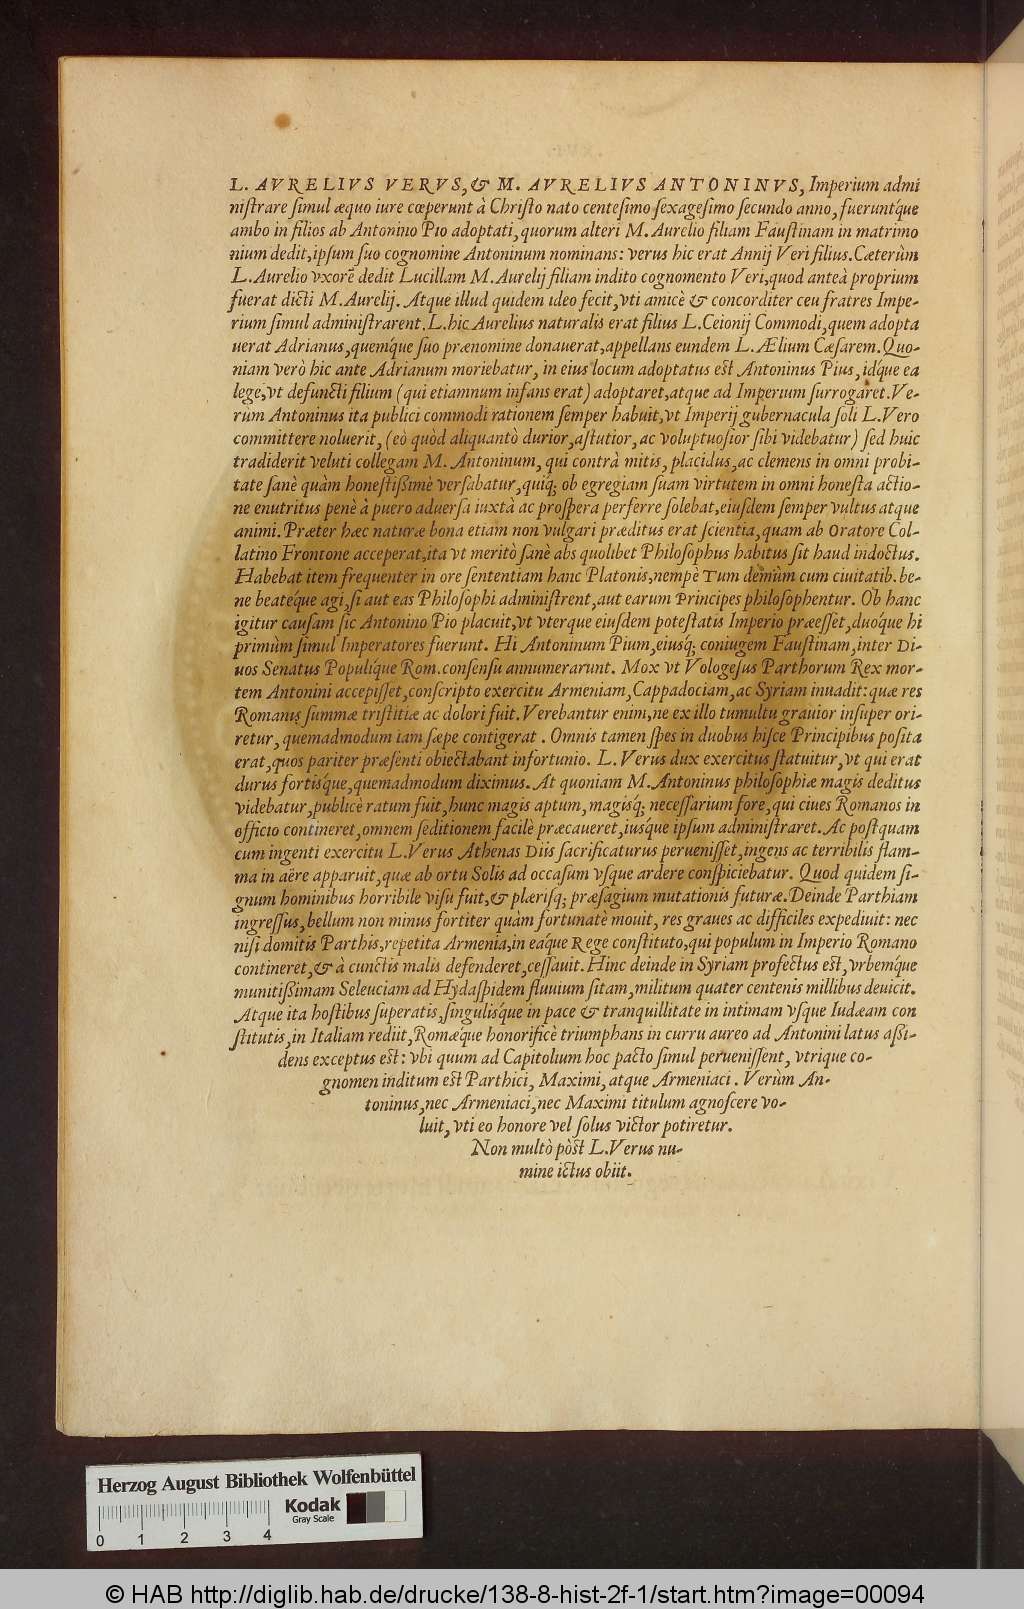 L. AVRELIVS VERVS, & M. AVRELIVS ANTONINVS, Imperium admi
niſtrare ſimul æquo iure cœperunt à Chriſto nato centeſimo ſexageſimo ſecundo anno, fuerunt'que
ambo in filios ab Antonino Pio adoptati, quorum alteri M. Aurelio filiam Fauſtinam in matrimo
nium dedit, ipſum ſuo cognomine Antoninum nominans: verus hic erat Annij Veri filius. Cæterùm
L. Aurelio vxorē dedit Lucillam M. Aurelij filiam indito cognomento Veri, quod anteà proprium
fuerat dicti M. Aurelij. Atque illud quidem ideo fecit, vti amicè & concorditer ceu fratres Impe-
rium ſimul adminiſtrarent. L. hic Aurelius naturalis erat filius L. Ceionij Commodi, quem adopta
uerat Adrianus, quem'que ſuo prænomine donauerat, appellans eundem L. Ælium Cæſarem. Quo-
niam verò hic ante Adrianum moriebatur, in eius locum adoptatus eſt Antoninus Pius, id'que ea
lege, vt defuncti filium (qui etiamnum infans erat) adoptaret, atque ad Imperium ſurrogaret. Ve-
rùm Antoninus ita publici commodi rationem ſemper habuit, vt Imperij gubernacula ſoli L. Vero
committere noluerit, (eò quòd aliquantò durior, aſtutior, ac voluptuoſior ſibi videbatur) ſed huic
tradiderit veluti collegam M. Antoninum, qui contrà mitis, placidus, ac clemens in omni probi-
tate ſanè quàm honeſtißimè verſabatur, quiq; ob egregiam ſuam virtutem in omni honeſta actio-
ne enutritus penè à puero aduerſa iuxtà ac proſpera perferre ſolebat, eiuſdem ſemper vultus atque
animi. Præter hæc naturæ bona etiam non vulgari præditus erat ſcientia, quam ab Oratore Col-
latino Frontone acceperat, ita vt meritò ſanè abs quolibet Philoſophus habitus ſit haud indoctus.
Habebat item frequenter in ore ſententiam hanc Platonis, nempè Tum demùm cum ciuitatib. be-
ne beate'que agi, ſi aut eas Philoſophi adminiſtrent, aut earum Principes philoſophentur. Ob hanc
igitur cauſam ſic Antonino Pio placuit, vt vterque eiuſdem poteſtatis Imperio præeſſet, duo'que hi
primùm ſimul Imperatores fuerunt. Hi Antoninum Pium, eiuſq; coniugem Fauſtinam, inter Di-
uos Senatus Populi'que Rom. conſenſu annumerarunt. Mox vt Vologeſus Parthorum Rex mor-
tem Antonini accepiſſet, conſcripto exercitu Armeniam, Cappadociam, ac Syriam inuadit: quæ res
Romanis ſummæ triſtitiæ ac dolori fuit. Verebantur enim, ne ex illo tumultu grauior inſuper ori-
retur, quemadmodum iam ſæpe contigerat. Omnis tamen ſpes in duobus hiſce Principibus poſita
erat, quos pariter præſenti obiectabant infortunio. L. Verus dux exercitus ſtatuitur, vt qui erat
durus fortis'que, quemadmodum diximus. At quoniam M. Antoninus philoſophiæ magis deditus
videbatur, publicè ratum fuit, hunc magis aptum, magisq; neceſſarium fore, qui ciues Romanos in
officio contineret, omnem ſeditionem facilè præcaueret, ius'que ipſum adminiſtraret. Ac poſtquam
cum ingenti exercitu L. Verus Athenas Diis ſacrificaturus perueniſſet, ingens ac terribilis flam-
ma in aëre apparuit, quæ ab ortu Solis ad occaſum vſque ardere conſpiciebatur. Quod quidem ſi-
gnum hominibus horribile viſu fuit, & plæriſq; præſagium mutationis futuræ. Deinde Parthiam
ingreſſus, bellum non minus fortiter quàm fortunatè mouit, res graues ac difficiles expediuit: nec
niſi domitis Parthis, repetita Armenia, in ea'que Rege conſtituto, qui populum in Imperio Romano
contineret, & à cunctis malis defenderet, ceſſauit. Hinc deinde in Syriam profectus eſt, vrbem'que
munitißimam Seleuciam ad Hydaſpidem fluuium ſitam, militum quater centenis millibus deuicit.
Atque ita hoſtibus ſuperatis, ſingulis'que in pace & tranquillitate in intimam vſque Iudæam con
ſtitutis, in Italiam rediit, Romæ'que honorificè triumphans in curru aureo ad Antonini latus aßi-
dens exceptus eſt: vbi quum ad Capitolium hoc pacto ſimul perueniſſent, vtrique co-
gnomen inditum eſt Parthici, Maximi, atque Armeniaci. Verùm An-
toninus, nec Armeniaci, nec Maximi titulum agnoſcere vo-
luit, vti eo honore vel ſolus victor potiretur.
Non multò pòſt L. Verus nu-
mine ictus obiit.
Herzog August Bibliothek Wolfenbüttel
Kodak
Gray Scale
0 1 2 3 4
© HAB http://diglib.hab.de/drucke/138-8-hist-2f-1/start.htm?image=00094